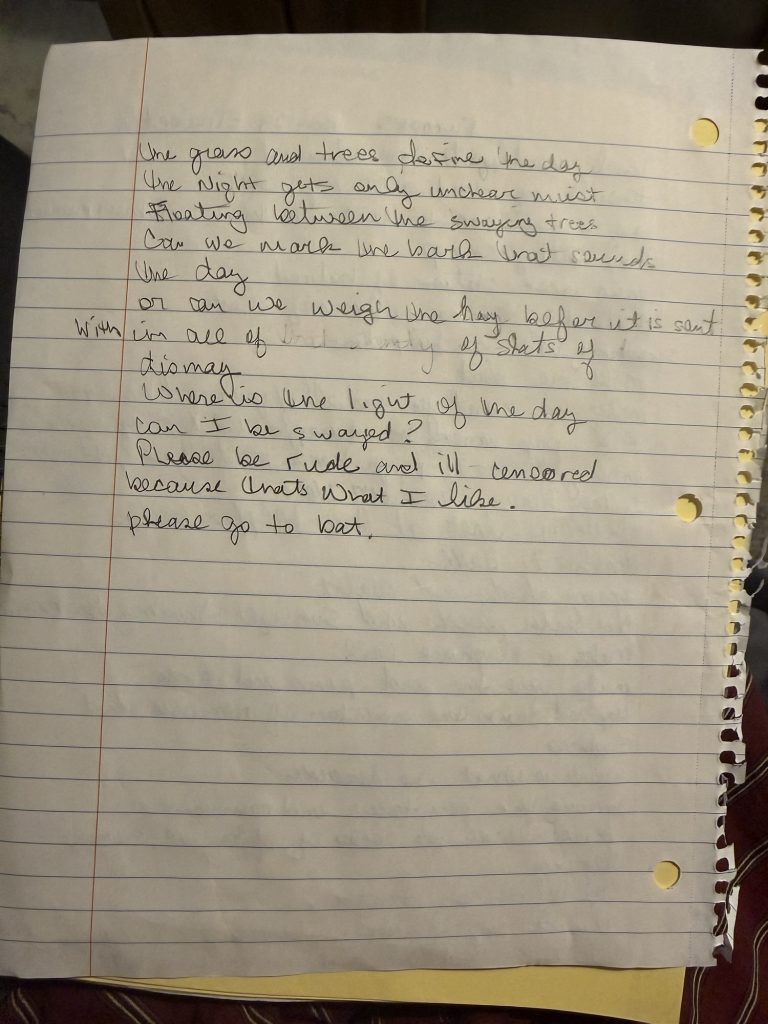 The grass and trees define the day
the Night gets only unclear mist
Floating between the swaying trees
Can we mark the bark that sounds
the day
or can we weigh the hay befor it is sent
With in all of of stats of
dismay
Where is the light of the day
can I be swayed?
Please be rude and ill-censored
because thats what I like.
please go to bat.